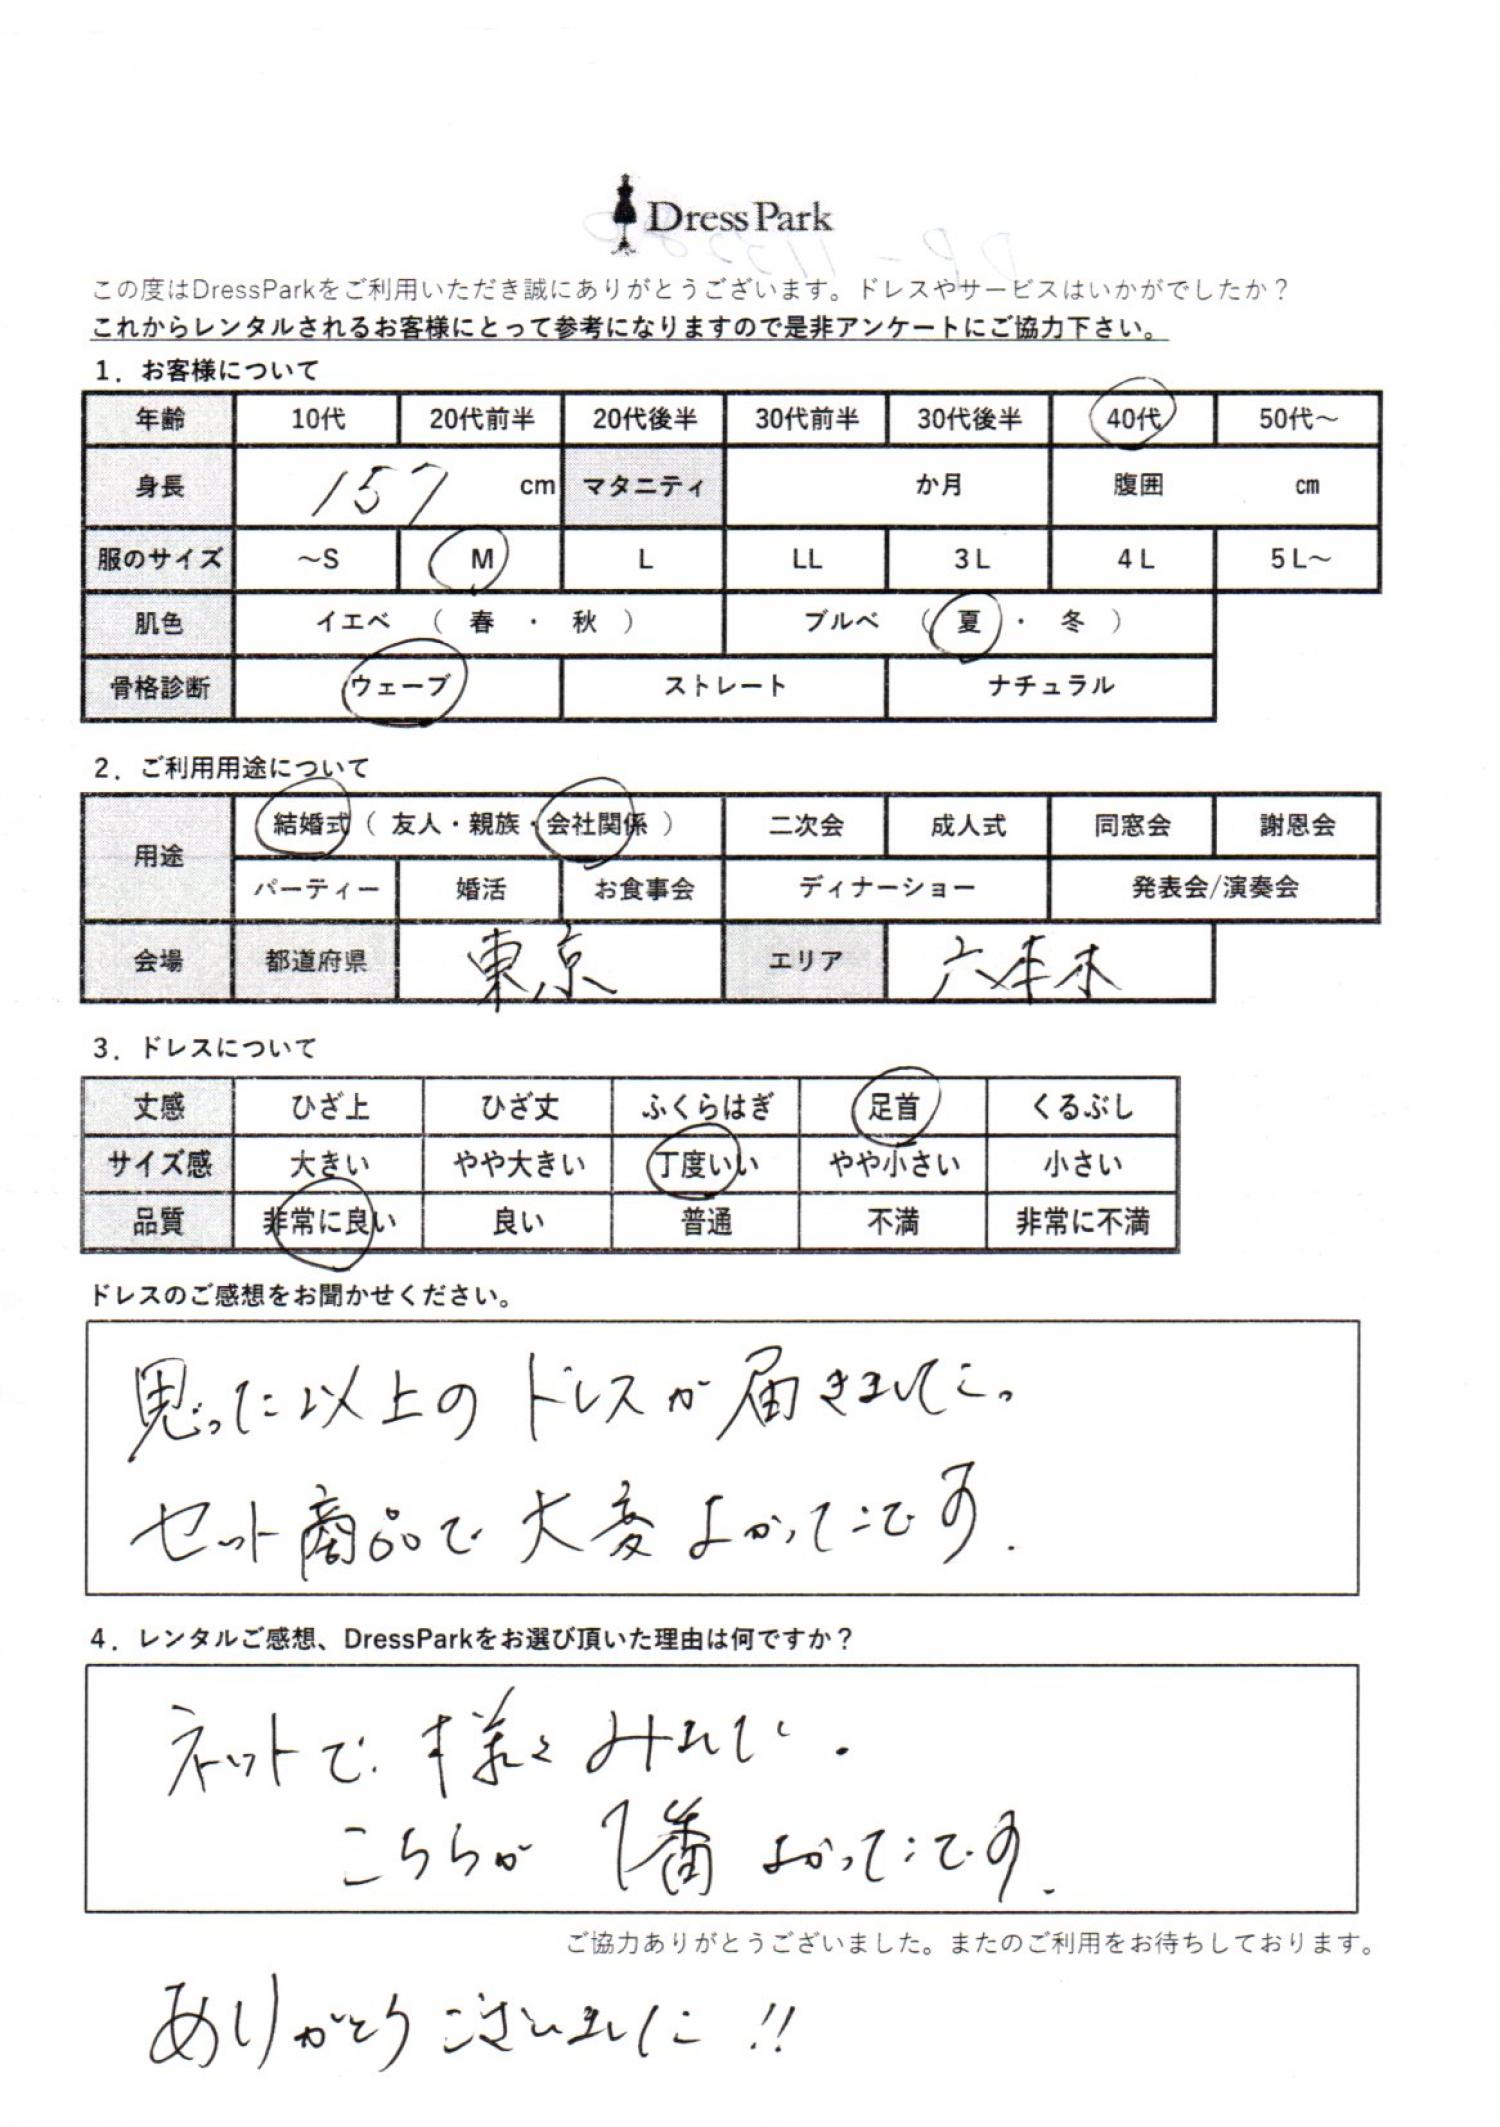 Dress Park
この度はDressParkをご利用いただき誠にありがとうございます。ドレスやサービスはいかがでしたか？
これからレンタルされるお客様にとって参考になりますので是非アンケートにご協力下さい。
1．お客様について
年齢 10代 20代前半 20代後半 30代前半 30代後半 40代 50代～
身長 157 cm マタニティ か月 腹囲 ㎝
服のサイズ ～S M L LL 3L 4L 5L～
肌色 イエベ （ 春 ・ 秋 ） ブルベ （ 夏 ・ 冬 ）
骨格診断 ウェーブ ストレート ナチュラル
2．ご利用用途について
用途 結婚式（ 友人・親族・会社関係 ） 二次会 成人式 同窓会 謝恩会
パーティー 婚活 お食事会 ディナーショー 発表会/演奏会
会場 都道府県 東京 エリア 六本木
3．ドレスについて
丈感 ひざ上 ひざ丈 ふくらはぎ 足首 くるぶし
サイズ感 大きい やや大きい 丁度いい やや小さい 小さい
品質 非常に良い 良い 普通 不満 非常に不満
ドレスのご感想をお聞かせください。
思った以上のドレスが届きました。
セット商品で大変よかったです.
4．レンタルご感想、DressParkをお選び頂いた理由は何ですか？
ネットで様々みれて.
こちらが1番よかったです.
ご協力ありがとうございました。またのご利用をお待ちしております。
ありがとうございました!!